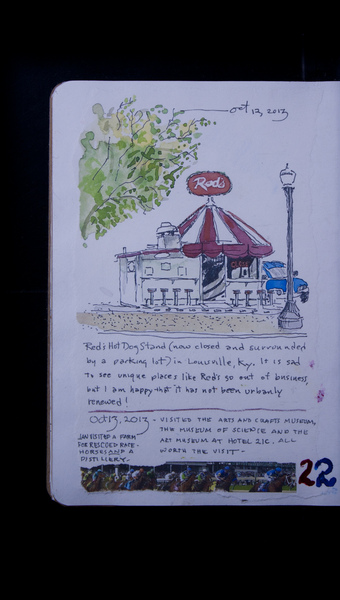 Oct 12, 2013
Rod's
Rod's Hot Dog Stand (now closed and surrounded
by a parking lot) in Louisville, Ky. It is sad
to see unique places like Rod's go out of business,
but I am happy that it has not been urbanly
renewed!
Oct 13, 2013 - VISITED THE ARTS AND CRAFTS MUSEUM,
THE MUSEUM OF SCIENCE AND THE
ART MUSEUM AT HOTEL 21C. ALL
WORTH THE VISIT -
JAN VISITED A FARM
FOR RESCUED RACE-
HORSES AND A
DISTILLERY.
22